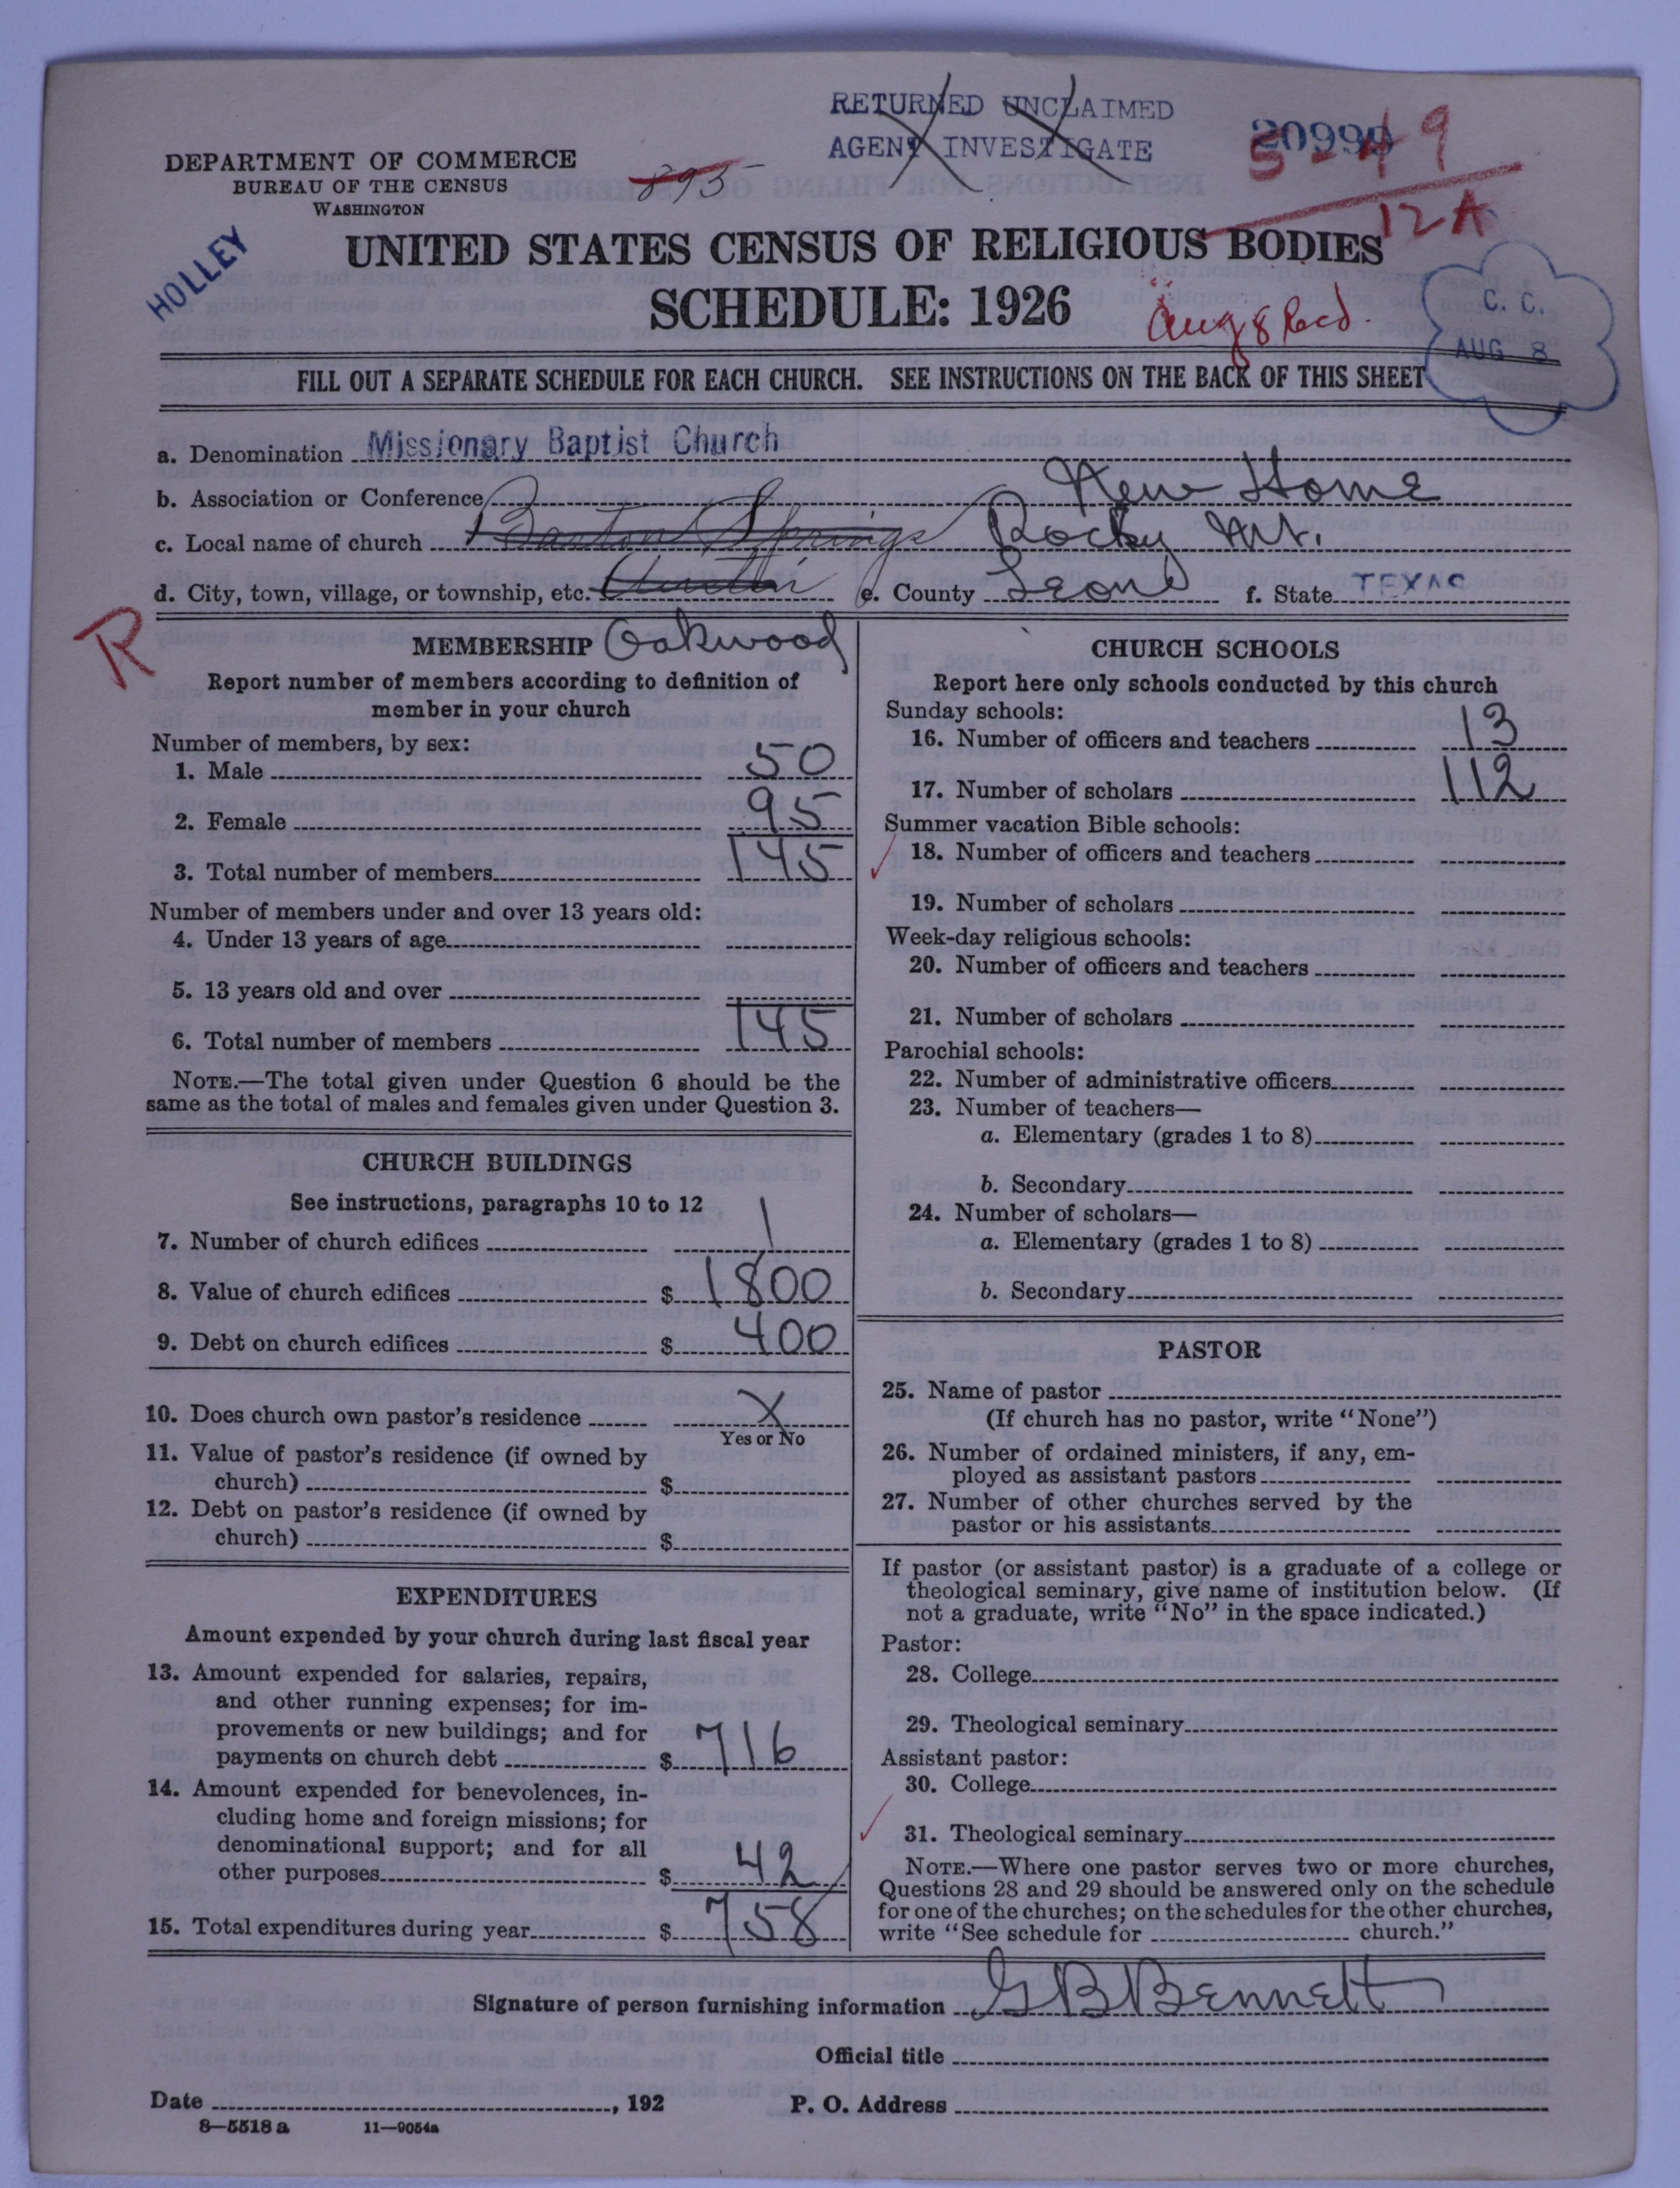 RETURNED UNCLAIMED
AGENT INVESTIGATE
20999
5-49
12 A
DEPARTMENT OF COMMERCE
BUREAU OF THE CENSUS
WASHINGTON
893
HOLLEY
UNITED STATES CENSUS OF RELIGIOUS BODIES
SCHEDULE: 1926
Aug 8 Recd.
C. C.
AUG 8
FILL OUT A SEPARATE SCHEDULE FOR EACH CHURCH. SEE INSTRUCTIONS ON THE BACK OF THIS SHEET
a. Denomination Missionary Baptist Church
b. Association or Conference New Home
c. Local name of church Barton Springs Rocky Mt.
d. City, town, village, or township, etc. Austin e. County Leon f. State TEXAS
R
MEMBERSHIP Oakwood
Report number of members according to definition of
member in your church
Number of members, by sex:
1. Male 50
2. Female 95
3. Total number of members 145
Number of members under and over 13 years old:
4. Under 13 years of age
5. 13 years old and over
6. Total number of members 145
NOTE.—The total given under Question 6 should be the
same as the total of males and females given under Question 3.
CHURCH BUILDINGS
See instructions, paragraphs 10 to 12
7. Number of church edifices 1
8. Value of church edifices $ 1800
9. Debt on church edifices $ 400
10. Does church own pastor's residence X
Yes or No
11. Value of pastor's residence (if owned by
church) $
12. Debt on pastor's residence (if owned by
church) $
EXPENDITURES
Amount expended by your church during last fiscal year
13. Amount expended for salaries, repairs,
and other running expenses; for im-
provements or new buildings; and for
payments on church debt $ 716
14. Amount expended for benevolences, in-
cluding home and foreign missions; for
denominational support; and for all
other purposes $ 42
15. Total expenditures during year $ 758
CHURCH SCHOOLS
Report here only schools conducted by this church
Sunday schools:
16. Number of officers and teachers 13
17. Number of scholars 112
Summer vacation Bible schools:
18. Number of officers and teachers
19. Number of scholars
Week-day religious schools:
20. Number of officers and teachers
21. Number of scholars
Parochial schools:
22. Number of administrative officers
23. Number of teachers—
a. Elementary (grades 1 to 8)
b. Secondary
24. Number of scholars—
a. Elementary (grades 1 to 8)
b. Secondary
PASTOR
25. Name of pastor
(If church has no pastor, write "None")
26. Number of ordained ministers, if any, em-
ployed as assistant pastors
27. Number of other churches served by the
pastor or his assistants
If pastor (or assistant pastor) is a graduate of a college or
theological seminary, give name of institution below. (If
not a graduate, write "No" in the space indicated.)
Pastor:
28. College
29. Theological seminary
Assistant pastor:
30. College
31. Theological seminary
NOTE.—Where one pastor serves two or more churches,
Questions 28 and 29 should be answered only on the schedule
for one of the churches; on the schedules for the other churches,
write "See schedule for church."
Signature of person furnishing information G B Bennett
Official title
Date , 192 P. O. Address
8—5518 a 11—9054a